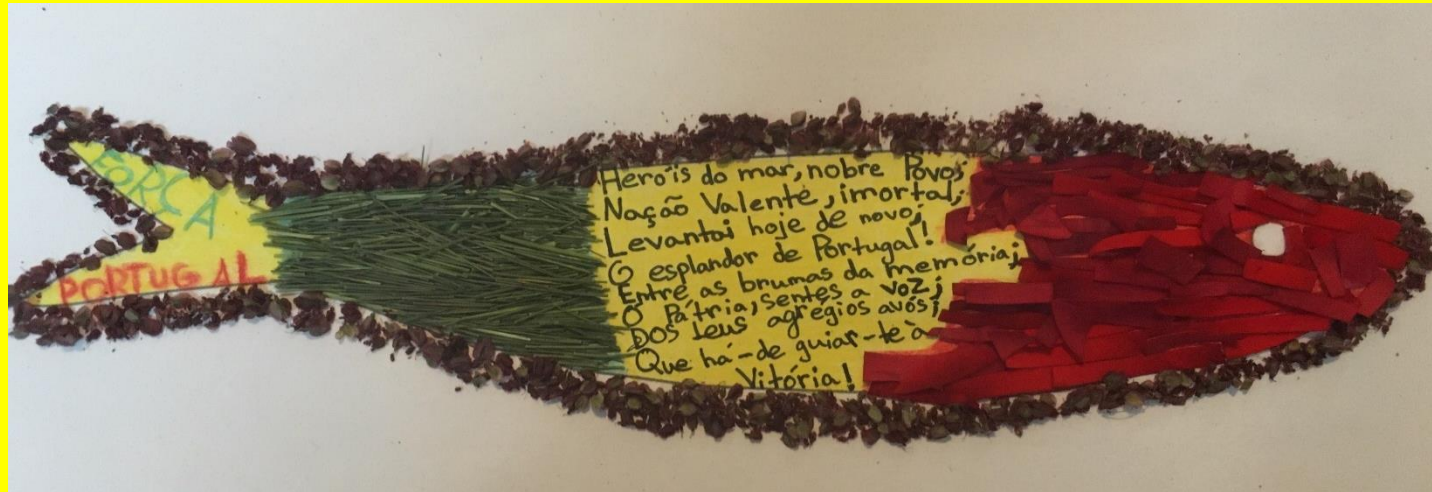 FORÇA
PORTUGAL
Heróis do mar, nobre Povo;
Nação Valente, imortal;
Levantai hoje de novo,
O esplandor de Portugal!
Entre as brumas da memória;
Ó Pátria, sentes a voz;
Dos teus agregios avós;
Que há-de guiar-te à
Vitória!